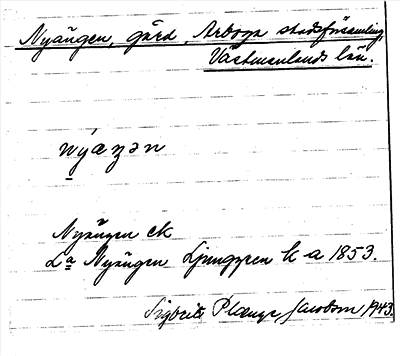 Nyängen, gård, Arboga stadsförsamling,
Västmanlands län.
Nyängen ek
La Nyängen Ljunggren h a 1853
Sigbrit Plænge Jacobson 1943